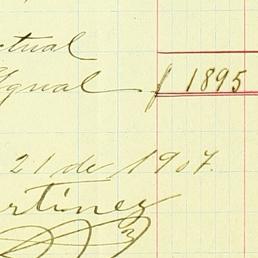 ctual
Ygual $ 1895
21 de 1907.
artinez